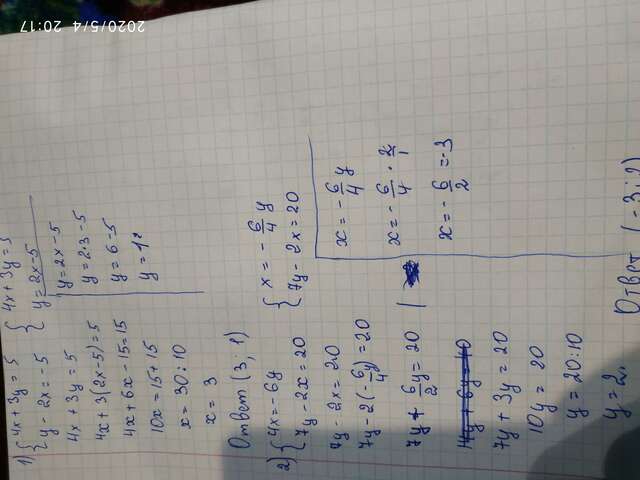 2020/5/4 20:17
1) { 4x + 3y = 5
{ y - 2x = -5
{ 4x + 3y = 5
{ y = 2x - 5
4x + 3y = 5
4x + 3(2x - 5) = 5
4x + 6x - 15 = 15
10x = 15 + 15
x = 30 : 10
x = 3
y = 2x - 5
y = 2·3 - 5
y = 6 - 5
y = 1
Ответ (3; 1)
2) { 4x = -6y
{ 7y - 2x = 20
{ x = -6/4 y
{ 7y - 2x = 20
7y - 2x = 20
7y - 2(-6/4 y) = 20
7y + 6/2 y = 20
7y + 3y = 20
10y = 20
y = 20 : 10
y = 2.
x = -6/4 y
x = -6/4 · 2/1
x = -6/2 = -3
Ответ (-3; 2)